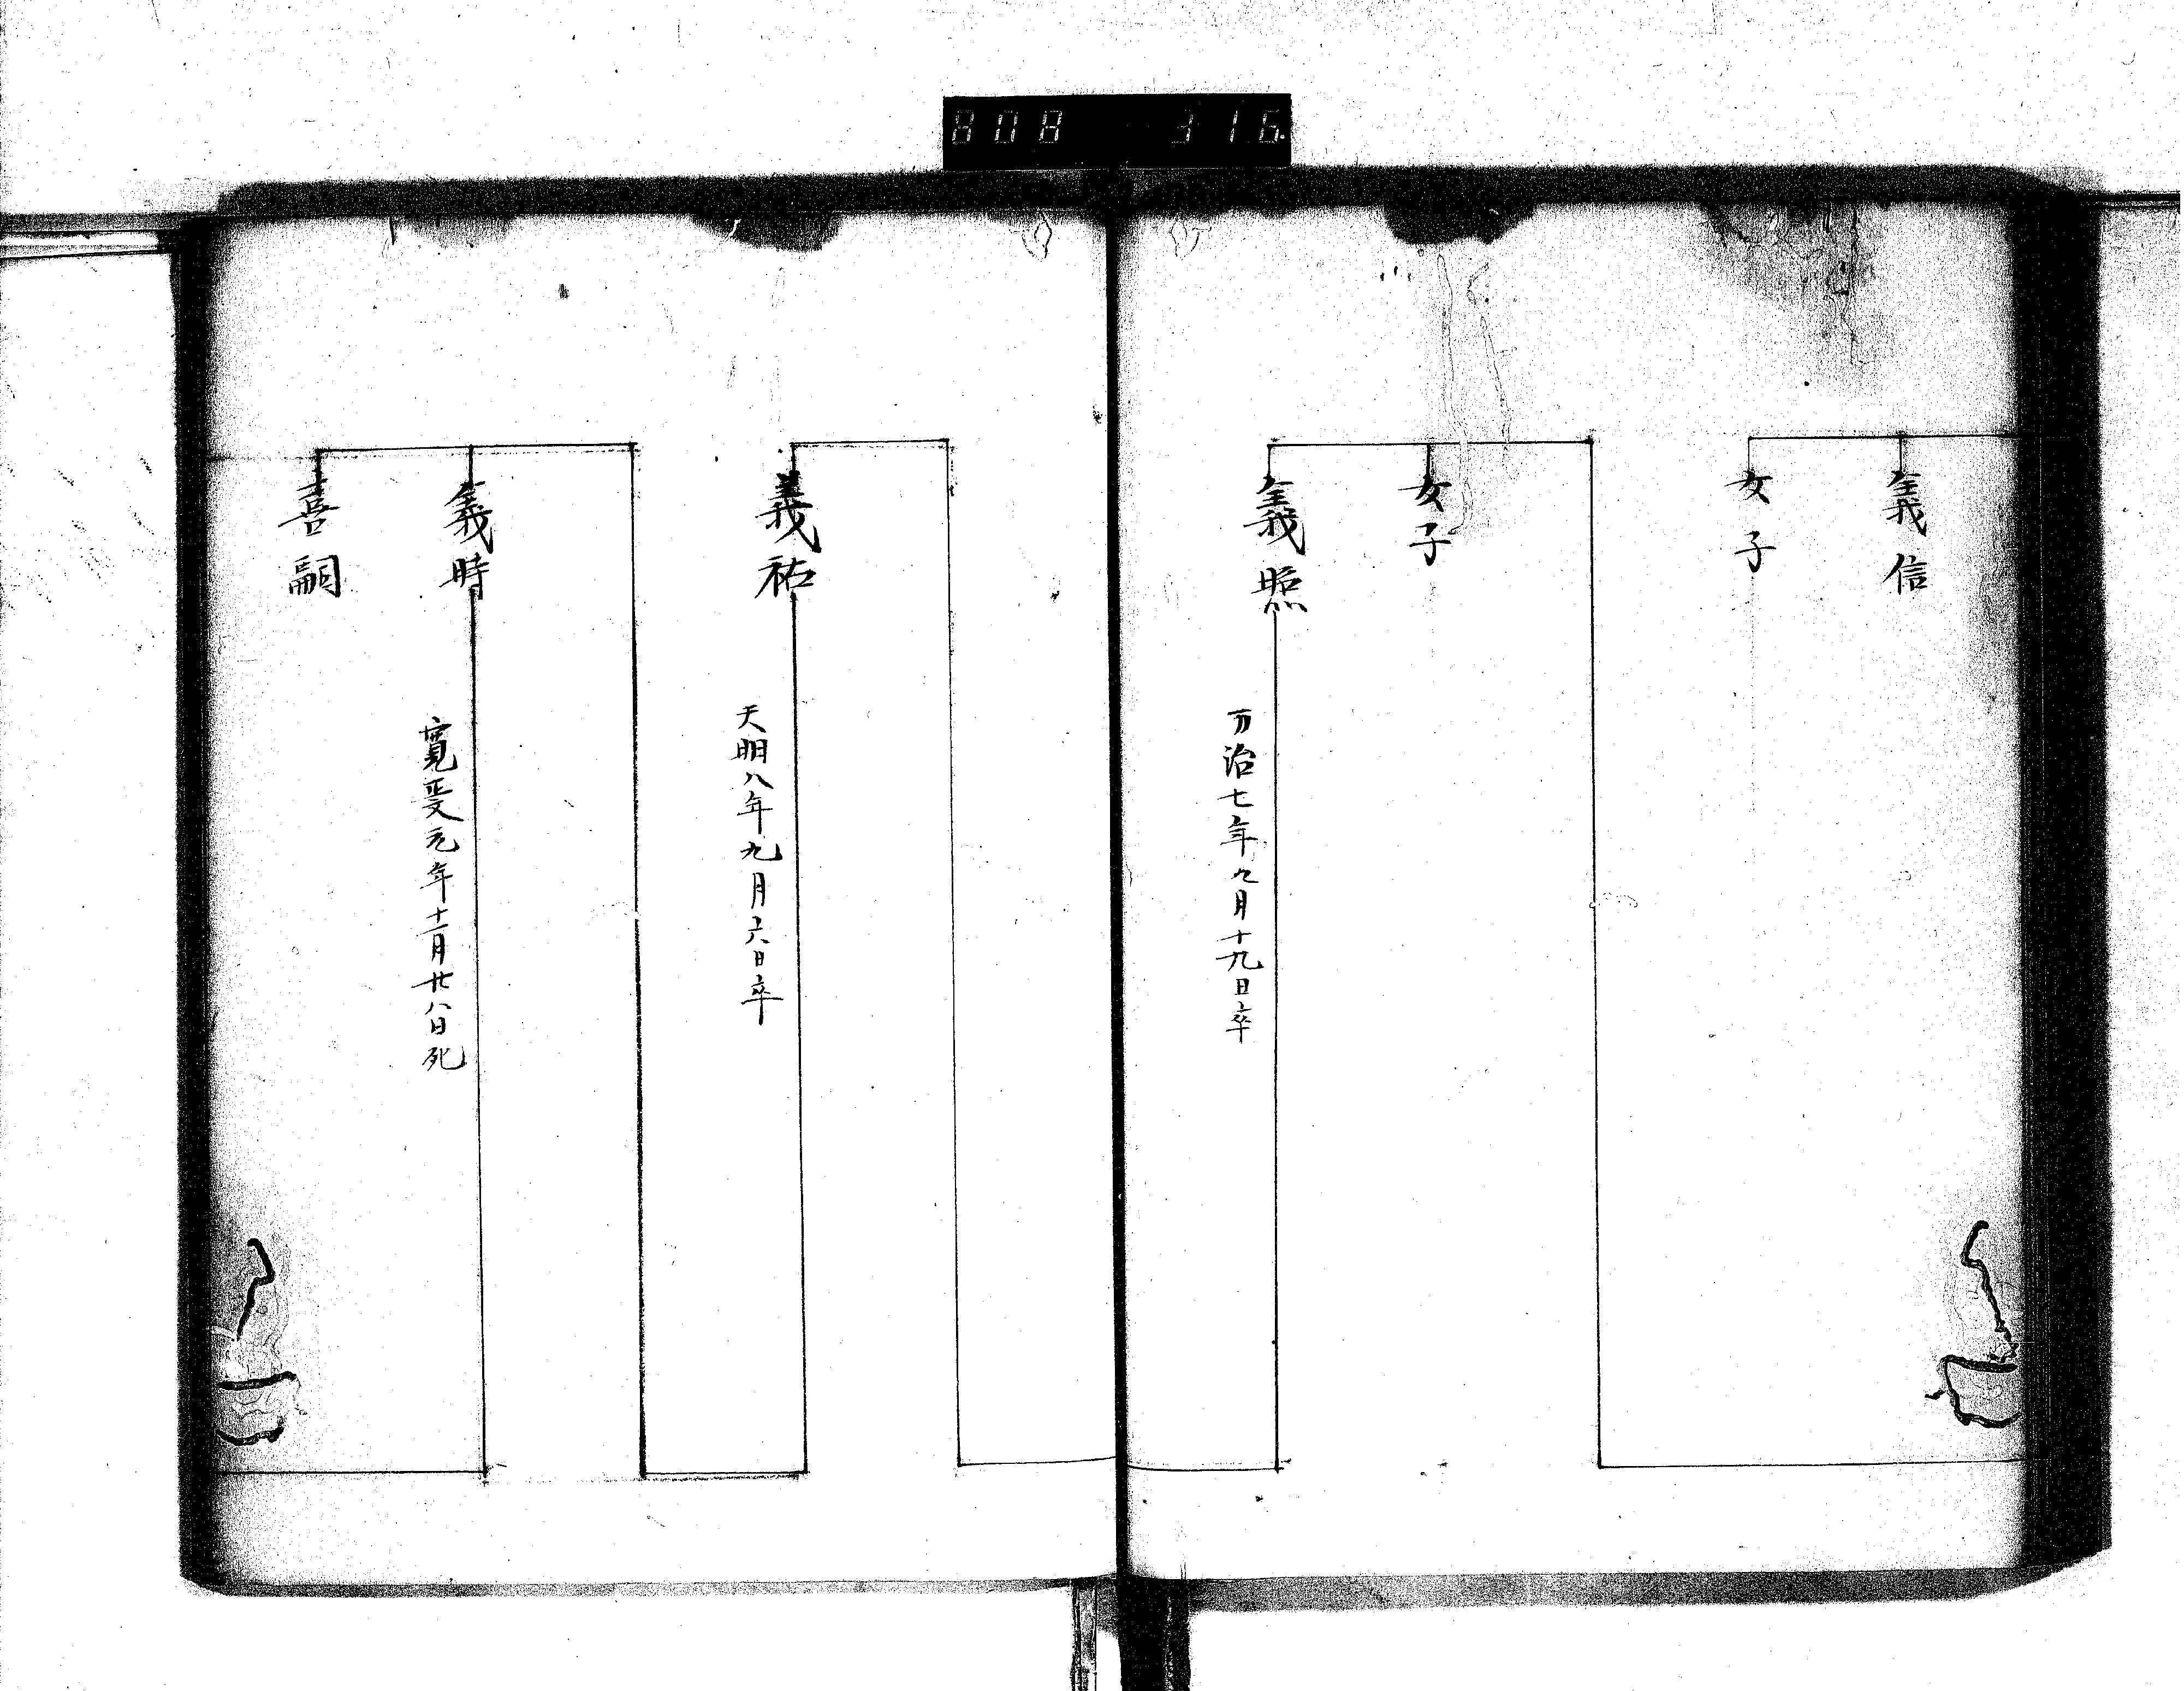 808 316
義信
女子
女子
義照
万治七年九月十九日卒
義祐
天明八年九月六日卒
義時
元年十二月廿八日死
喜嗣